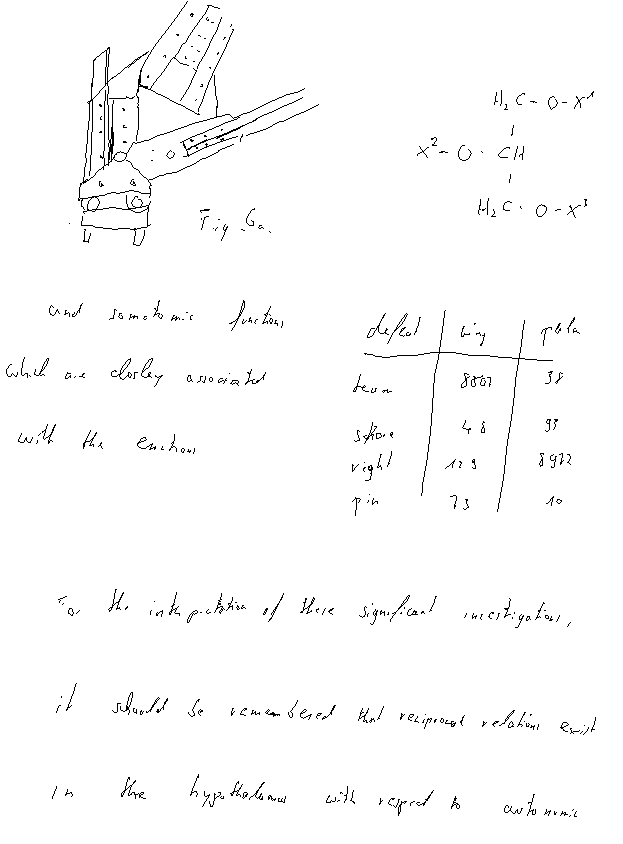 Fig. 6a.
H₂C - O - X¹
X² - O - CH
H₂C - O - X³
and somatomic functions
which are closley associated
with the emotions
defeat
team 38
48 93
right 129 8972
pin 73 10
For the interpretation of these significant investigations,
it should be remembered that reciprocal relations exist
in the hypothalamus with respect to autonomic